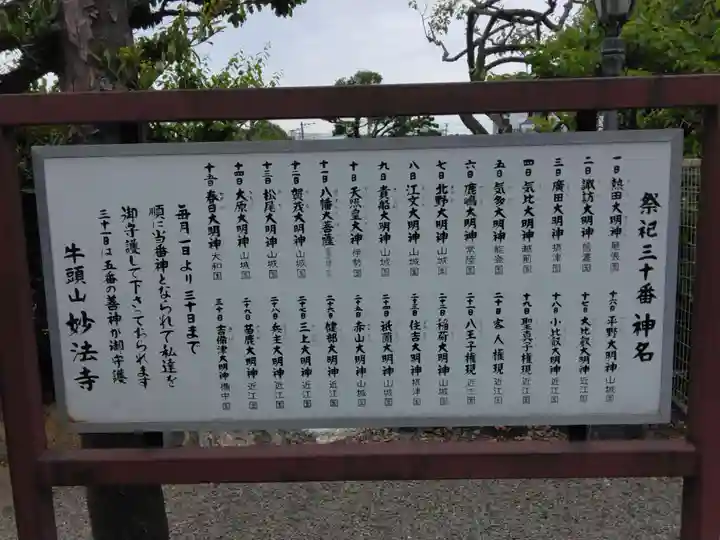 祭祀三十番神名
一日 熱田大明神 尾張国
二日 諏訪大明神 信濃国
三日 廣田大明神 摂津国
四日 気比大明神 越前国
五日 気多大明神 能登国
六日 鹿嶋大明神 常陸国
七日 北野大明神 山城国
八日 江文大明神 山城国
九日 貴船大明神 山城国
十日 天照皇大神 伊勢国
十一日 八幡大菩薩
十二日 賀茂大明神 山城国
十三日 松尾大明神 山城国
十四日 大原大明神 山城国
十五日 春日大明神 大和国
十六日 平野大明神 山城国
十七日 大比叡大明神 近江国
十八日 小比叡大明神 近江国
十九日 聖真子権現 近江国
二十日 客人権現 近江国
二十一日 八王子権現 近江国
二十二日 稲荷大明神 山城国
二十三日 住吉大明神 摂津国
二十四日 祇園大明神 山城国
二十五日 赤山大明神 山城国
二十六日 健部大明神 近江国
二十七日 三上大明神 近江国
二十八日 兵主大明神 近江国
二十九日 苗鹿大明神 近江国
三十日 吉備津大明神 備中国
毎月一日より三十日まで
順に当番神となられて私達を
御守護して下さっておられます
三十一日は五番の善神が御守護
牛頭山 妙法寺